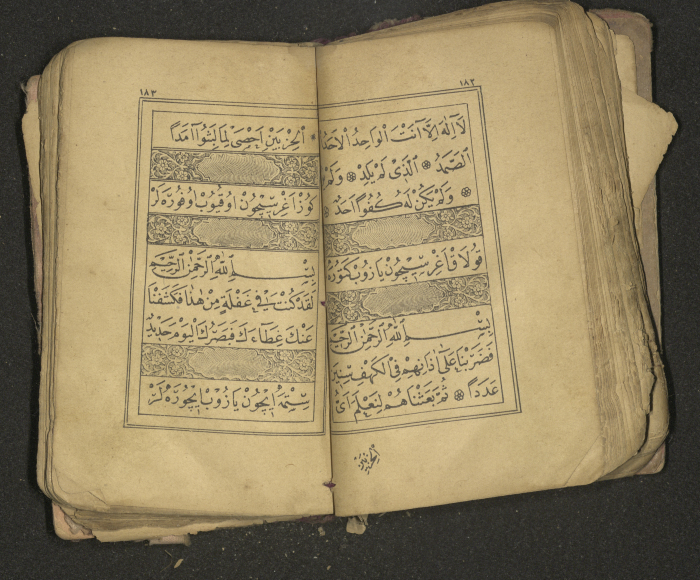 ١٨٢
لَا اِلٰهَ اِلَّا اَنْتَ الْوَاحِدُ الْاَحَدُ
الصَّمَدُ ❋ الَّذِى لَمْ يَلِدْ ❋ وَلَمْ
❋ وَلَمْ يَكُنْ لَهُ كُفُوًا اَحَدٌ ❋
قولاق اغريسيچون يازوب كتوره
بِسْمِ اللّٰهِ الرَّحْمٰنِ الرَّحِيمِ
فَضَرَبْنَا عَلَى اٰذَانِهِمْ فِى الْكَهْفِ سِنِينَ
عَدَدًا ❋ ثُمَّ بَعَثْنَاهُمْ لِنَعْلَمَ اَىُّ
الحزبين
١٨٣
الْحِزْبَيْنِ اَحْصَى لِمَا لَبِثُوا اَمَدًا
كوز اغريسيچون اوقيوب اوفوره لر
بِسْمِ اللّٰهِ الرَّحْمٰنِ الرَّحِيمِ
لَقَدْ كُنْتَ فِى غَفْلَةٍ مِنْ هٰذَا فَكَشَفْنَا
عَنْكَ غِطَاءَكَ فَبَصَرُكَ الْيَوْمَ حَدِيدٌ
ستمه ايچون يازوب ايچوره لر